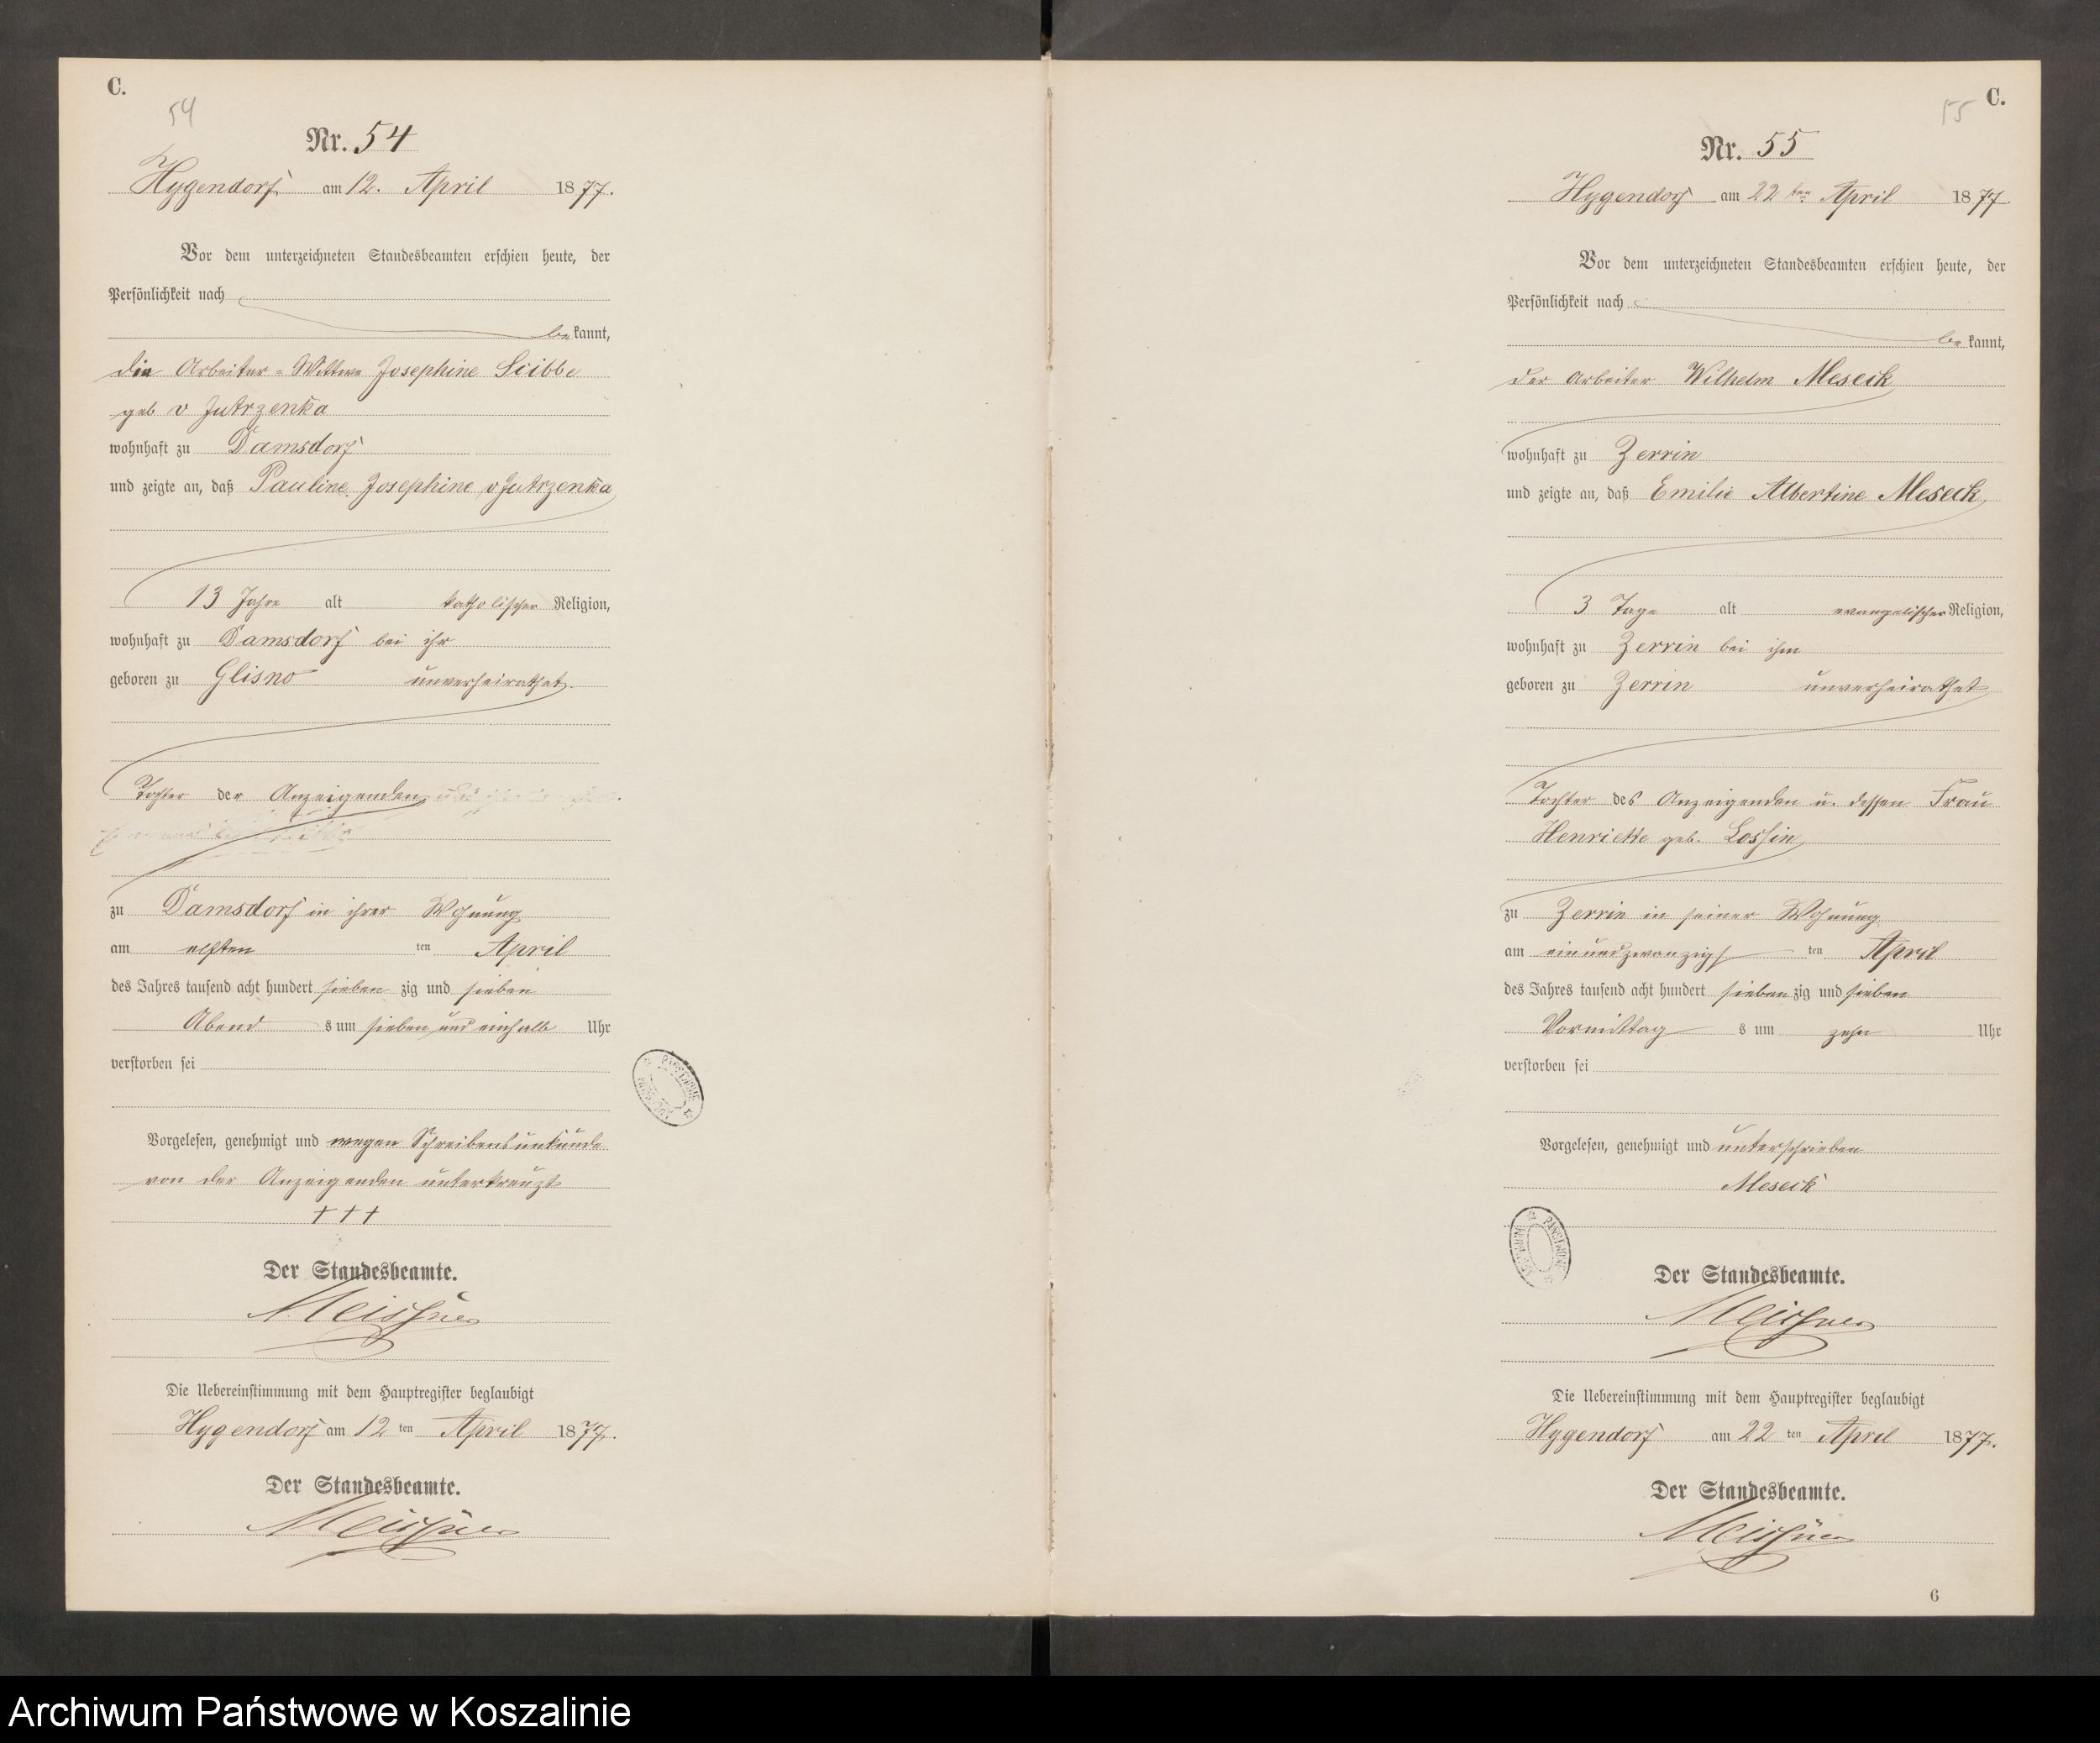 C.
54
Nr. 54
Hygendorf am 12. April 1877.
Vor dem unterzeichneten Standesbeamten erschien heute, der
Persönlichkeit nach
bekannt,
die Arbeiter-Wittwe Josephine Scibbe
geb v Jutrzenka
wohnhaft zu Damsdorf
und zeigte an, daß Pauline Josephine v Jutrzenka
13 Jahre alt katholischer Religion,
wohnhaft zu Damsdorf bei ihr
geboren zu Glisno unverheirathet.
Tochter der Anzeigenden
zu Damsdorf in ihrer Wohnung
am elften ten April
des Jahres tausend acht hundert sieben zig und sieben
Abend s um sieben und einhalb Uhr
verstorben sei
Vorgelesen, genehmigt und wegen Schreibensunkunde
von der Anzeigenden unterkreuzt
+++
Der Standesbeamte.
Meissner
Die Uebereinstimmung mit dem Hauptregister beglaubigt
Hygendorf am 12 ten April 1877.
Der Standesbeamte.
Meissner
C.
55
Nr. 55
Hygendorf am 22 ten April 1877.
Vor dem unterzeichneten Standesbeamten erschien heute, der
Persönlichkeit nach
bekannt,
der Arbeiter Wilhelm Meseck
wohnhaft zu Zerrin
und zeigte an, daß Emilie Albertine Meseck
3 Tage alt evangelischer Religion,
wohnhaft zu Zerrin bei ihm
geboren zu Zerrin unverheirathet
Tochter des Anzeigenden u. dessen Frau
Henriette geb. Lossin
zu Zerrin in seiner Wohnung
am einundzwanzigs ten April
des Jahres tausend acht hundert sieben zig und sieben
Vormittag s um zehn Uhr
verstorben sei
Vorgelesen, genehmigt und unterschrieben
Meseck
Der Standesbeamte.
Meissner
Die Uebereinstimmung mit dem Hauptregister beglaubigt
Hygendorf am 22 ten April 1877.
Der Standesbeamte.
Meissner
6
Archiwum Państwowe w Koszalinie